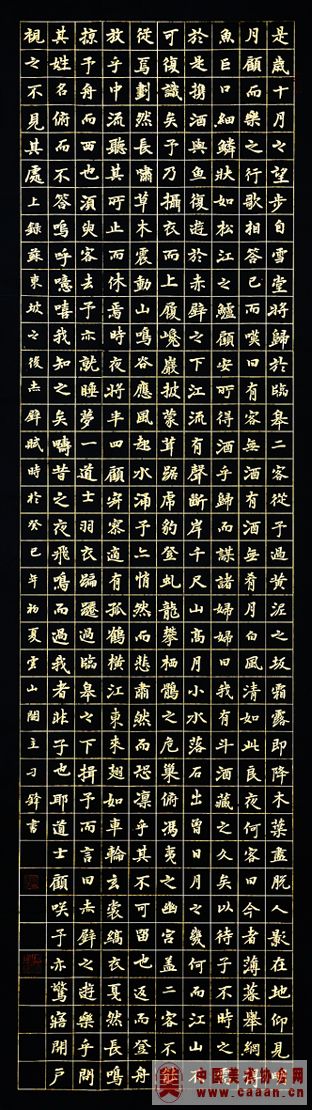 是歲十月之望步自雪堂將歸於臨皋二客從予過黃泥之坂霜露即降木葉盡脫人影在地仰見明
月顧而樂之行歌相答已而嘆曰有客無酒有酒無肴月白風清如此良夜何客曰今者薄暮舉網得
魚巨口細鱗狀如松江之鱸顧安所得酒乎歸而謀諸婦婦曰我有斗酒藏之久矣以待子不時之需
於是攜酒與魚復遊於赤壁之下江流有聲斷岸千尺山高月小水落石出曾日月之幾何而江山不
可復識矣予乃攝衣而上履巉巖披蒙茸踞虎豹登虬龍攀栖鶻之危巢俯馮夷之幽宮蓋二客不能
從焉劃然長嘯草木震動山鳴谷應風起水涌予亦悄然而悲肅然而恐凜乎其不可留也返而登舟
放乎中流聽其所止而休焉時夜將半四顧寂寥適有孤鶴橫江東來翅如車輪玄裳縞衣戛然長鳴
掠予舟而西也須臾客去予亦就睡夢一道士羽衣蹁躚過臨皋之下揖予而言曰赤壁之遊樂乎問
其姓名俯而不答嗚呼噫嘻我知之矣疇昔之夜飛鳴而過我者非子也耶道士顧咲予亦驚寤開戶
視之不見其處上錄蘇東坡之後赤壁賦時於癸巳年初夏雲山閣主刁鋒書
www.caaan.cn